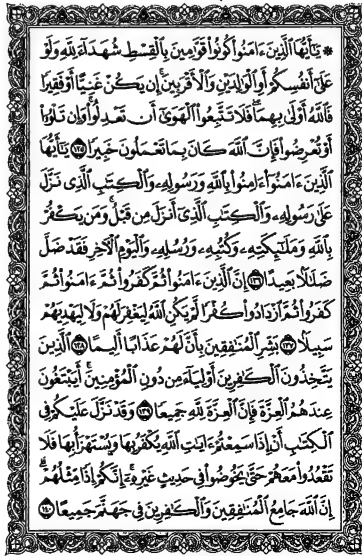 ۞ يَٰٓأَيُّهَا ٱلَّذِينَ ءَامَنُواْ كُونُواْ قَوَّٰمِينَ بِٱلۡقِسۡطِ شُهَدَآءَ لِلَّهِ وَلَوۡ
عَلَىٰٓ أَنفُسِكُمۡ أَوِ ٱلۡوَٰلِدَيۡنِ وَٱلۡأَقۡرَبِينَۚ إِن يَكُنۡ غَنِيًّا أَوۡ فَقِيرٗا
فَٱللَّهُ أَوۡلَىٰ بِهِمَاۖ فَلَا تَتَّبِعُواْ ٱلۡهَوَىٰٓ أَن تَعۡدِلُواْۚ وَإِن تَلۡوُۥٓاْ
أَوۡ تُعۡرِضُواْ فَإِنَّ ٱللَّهَ كَانَ بِمَا تَعۡمَلُونَ خَبِيرٗا ١٣٥ يَٰٓأَيُّهَا
ٱلَّذِينَ ءَامَنُوٓاْ ءَامِنُواْ بِٱللَّهِ وَرَسُولِهِۦ وَٱلۡكِتَٰبِ ٱلَّذِي نَزَّلَ
عَلَىٰ رَسُولِهِۦ وَٱلۡكِتَٰبِ ٱلَّذِيٓ أَنزَلَ مِن قَبۡلُۚ وَمَن يَكۡفُرۡ
بِٱللَّهِ وَمَلَٰٓئِكَتِهِۦ وَكُتُبِهِۦ وَرُسُلِهِۦ وَٱلۡيَوۡمِ ٱلۡأٓخِرِ فَقَدۡ ضَلَّ
ضَلَٰلَۢا بَعِيدًا ١٣٦ إِنَّ ٱلَّذِينَ ءَامَنُواْ ثُمَّ كَفَرُواْ ثُمَّ ءَامَنُواْ ثُمَّ
كَفَرُواْ ثُمَّ ٱزۡدَادُواْ كُفۡرٗا لَّمۡ يَكُنِ ٱللَّهُ لِيَغۡفِرَ لَهُمۡ وَلَا لِيَهۡدِيَهُمۡ
سَبِيلَۢا ١٣٧ بَشِّرِ ٱلۡمُنَٰفِقِينَ بِأَنَّ لَهُمۡ عَذَابًا أَلِيمًا ١٣٨ ٱلَّذِينَ
يَتَّخِذُونَ ٱلۡكَٰفِرِينَ أَوۡلِيَآءَ مِن دُونِ ٱلۡمُؤۡمِنِينَۚ أَيَبۡتَغُونَ
عِندَهُمُ ٱلۡعِزَّةَ فَإِنَّ ٱلۡعِزَّةَ لِلَّهِ جَمِيعٗا ١٣٩ وَقَدۡ نَزَّلَ عَلَيۡكُمۡ فِي
ٱلۡكِتَٰبِ أَنۡ إِذَا سَمِعۡتُمۡ ءَايَٰتِ ٱللَّهِ يُكۡفَرُ بِهَا وَيُسۡتَهۡزَأُ بِهَا فَلَا
تَقۡعُدُواْ مَعَهُمۡ حَتَّىٰ يَخُوضُواْ فِي حَدِيثٍ غَيۡرِهِۦٓ إِنَّكُمۡ إِذٗا مِّثۡلُهُمۡۗ
إِنَّ ٱللَّهَ جَامِعُ ٱلۡمُنَٰفِقِينَ وَٱلۡكَٰفِرِينَ فِي جَهَنَّمَ جَمِيعًا ١٤٠